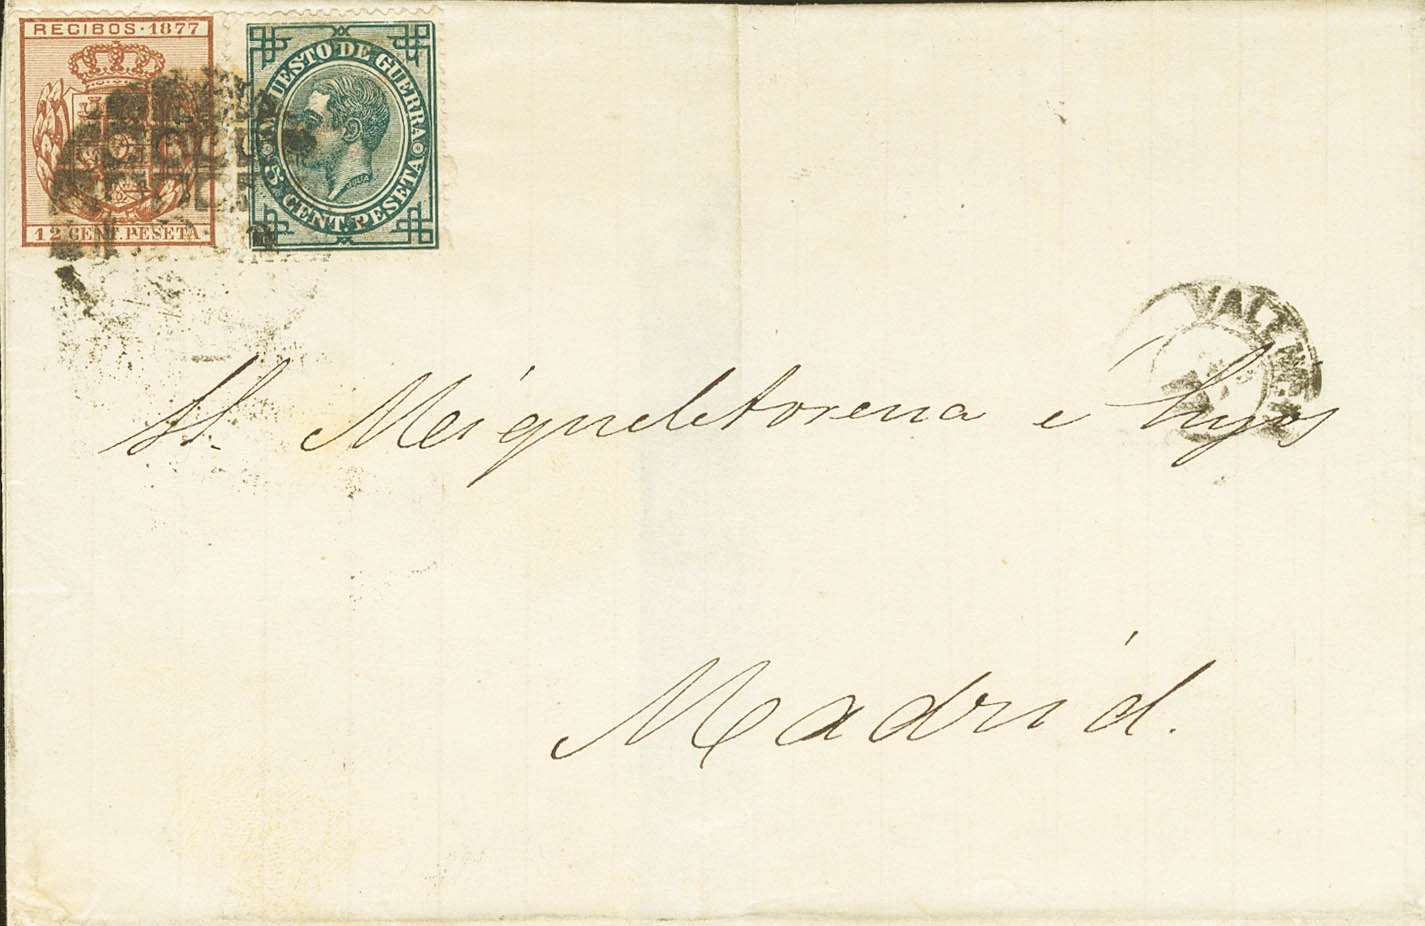 RECIBOS · 1877
12 CENT. PESETA
IMPUESTO DE GUERRA
5 CENT. PESETA
JULIA
Sr. Meiqueletorena e hijos
Madrid.